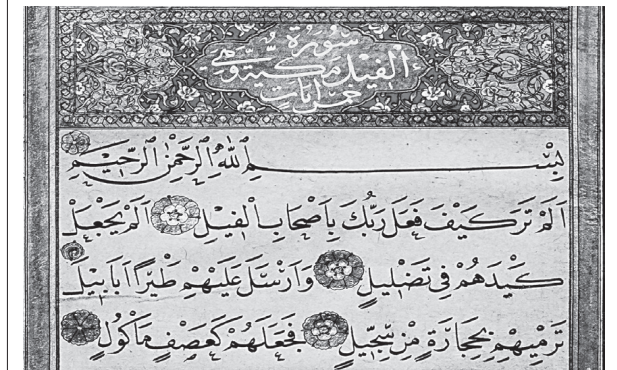 سورة
الفيل مكية وهي
خمس آيات
بِسْمِ اللهِ الرَّحْمٰنِ الرَّحِيمِ
اَلَمْ تَرَ كَيْفَ فَعَلَ رَبُّكَ بِاَصْحَابِ الْفِيلِ اَلَمْ يَجْعَلْ
كَيْدَهُمْ فِي تَضْلِيلٍ وَاَرْسَلَ عَلَيْهِمْ طَيْرًا اَبَابِيلَ
تَرْمِيهِمْ بِحِجَارَةٍ مِنْ سِجِّيلٍ فَجَعَلَهُمْ كَعَصْفٍ مَأْكُولٍ